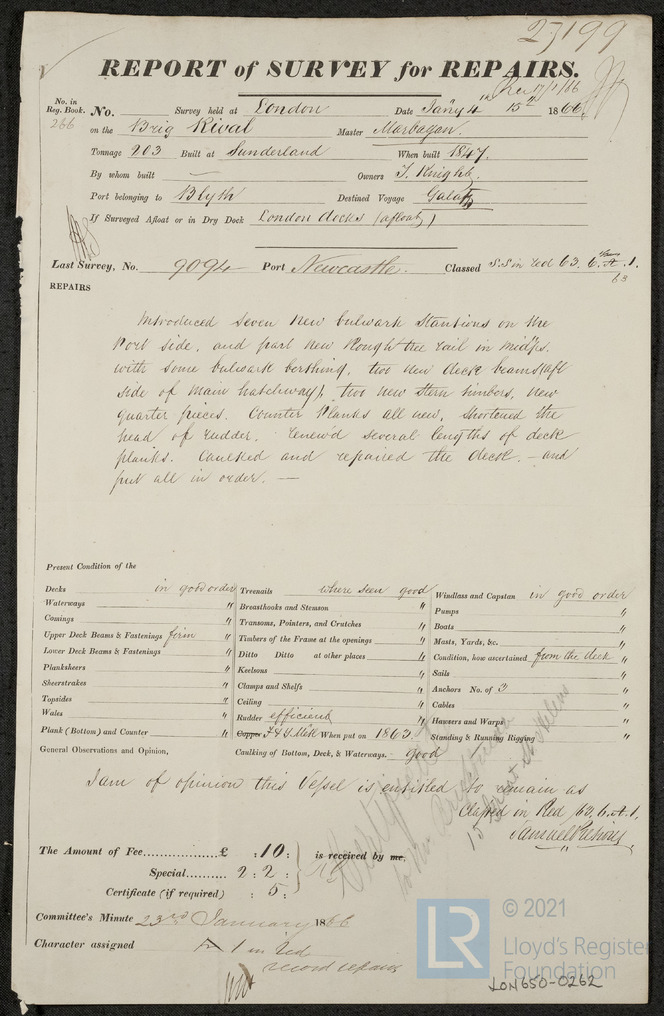 27199
REPORT of SURVEY for REPAIRS.
Rec 17/1/66
No. in Reg. Book. No. Survey held at London Date Jañy 4th 15th 1866
266 on the Brig Rival Master Marbagan.
Tonnage 203 Built at Sunderland When built 1847.
By whom built — Owners T. Knight.
Port belonging to Blyth Destined Voyage Galatz
If Surveyed Afloat or in Dry Dock London docks (afloat)
Last Survey, No. 9094 Port Newcastle. Classed S.S in Red 63. 6. A. 1.
63
REPAIRS
Introduced seven new bulwark stantions on the
Port side, and part new Rough tree rail in midps.
with some bulwark berthing, two new deck beams (aft
side of main hatchway), two new stern timbers, new
quarter pieces. Counter Planks all new, shortened the
head of rudder. renew'd several lengths of deck
planks. Caulked and repaired the deck. — and
put all in order. —
Present Condition of the
Decks in good order Treenails where seen good Windlass and Capstan in good order
Waterways " Breasthooks and Stemson " Pumps "
Comings " Transoms, Pointers, and Crutches " Boats "
Upper Deck Beams & Fastenings firm Timbers of the Frame at the openings " Masts, Yards, &c. "
Lower Deck Beams & Fastenings " Ditto Ditto at other places " Condition, how ascertained from the deck "
Planksheers " Keelsons " Sails "
Sheerstrakes " Clamps and Shelfs " Anchors No. of 3 "
Topsides " Ceiling " Cables "
Wales " Rudder efficient " Hawsers and Warps "
Plank (Bottom) and Counter " Copper F & Y Metl When put on 1863 Standing & Running Rigging "
General Observations and Opinion, Caulking of Bottom, Deck, & Waterways. good
I am of opinion this Vessel is entitled to remain as
Classed in Red 63. 6. A. 1.
Samuel
The Amount of Fee £ : 10 : is received by me,
Special 2 : 2 :
Certificate (if required) : 5 :
Certificate
to Mr
15 Great St Helens
Committee's Minute 23rd January 1866
Character assigned A 1 in Red
record repairs
LR © 2021
Lloyd's Register
Foundation
LON650-0262